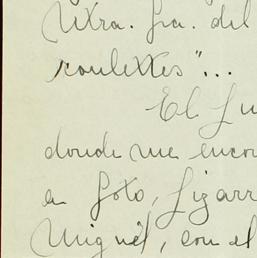 Ntra. Sra. del
roulettes"...
El Lu
donde me encon
a Soto, Lizarr
Miguel, con el